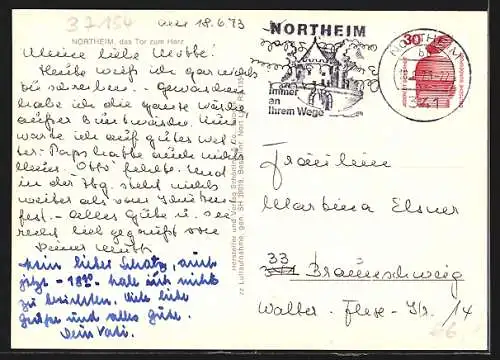 37154
18.6.73
NORTHEIM, das Tor zum Harz
Meine liebe
Heute weiß ich gar nichts
zu schreiben. - Gewaschen
habe ich die ganze Wäsche
außer Buntwäsche. Nun
warte ich auf gutes Wet-
ter. Papi hatte auch nichts
Otto fehlte. Und
in der Ztg. steht nichts
weiter als vom Schützen-
fest. - Alles Gute u. sei
recht lieb gegrüßt von
Deiner Mutti
Mein lieber Schatz, auch
jetzt - 18°° - habe ich nichts
zu berichten. Viele liebe
Grüße und alles Gute.
Dein Vati.
NORTHEIM
Immer
an
Ihrem Wege
NORTHEIM
341
30
Fräulein
Martina Elsner
33
Braunschweig
Walter-Flex-Str. 14